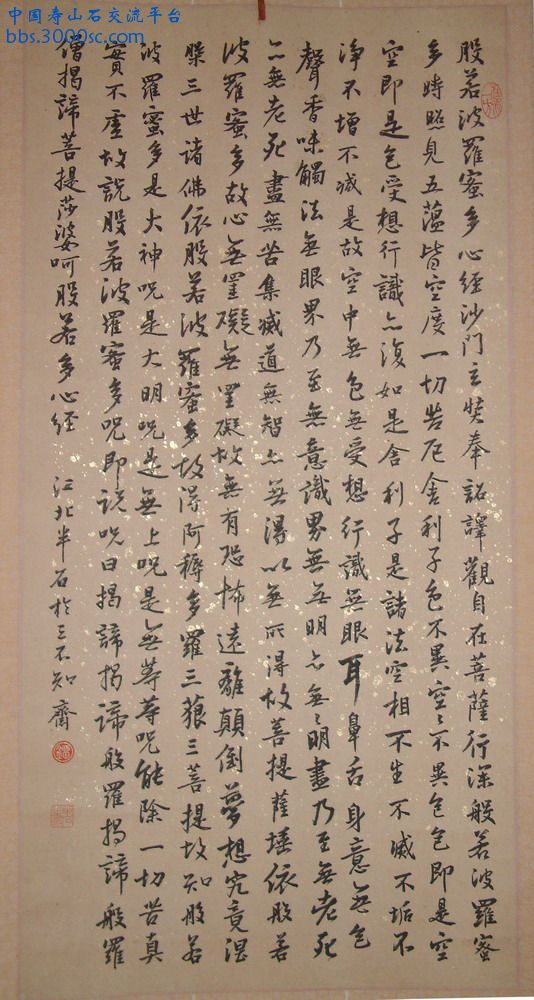 中国寿山石交流平台
bbs.3000sc.com
般若波羅蜜多心經沙門玄奘奉詔譯觀自在菩薩行深般若波羅蜜
多時照見五蘊皆空度一切苦厄舍利子色不異空々不異色色即是空
空即是色受想行識亦復如是舍利子是諸法空相不生不滅不垢不
淨不增不減是故空中無色無受想行識無眼耳鼻舌身意無色
聲香味觸法無眼界乃至無意識界無無明亦無々明盡乃至無老死
亦無老死盡無苦集滅道無智亦無得以無所得故菩提薩埵依般若
波羅蜜多故心無罣礙無罣礙故無有恐怖遠離顛倒夢想究竟涅
槃三世諸佛依般若波羅蜜多故得阿耨多羅三藐三菩提故知般若
波羅蜜多是大神呪是大明呪是無上呪是無等等呪能除一切苦真
實不虛故說般若波羅蜜多呪即說呪曰揭諦揭諦般羅揭諦般羅
僧揭諦菩提莎婆呵般若多心經 江北半石於三不知齋